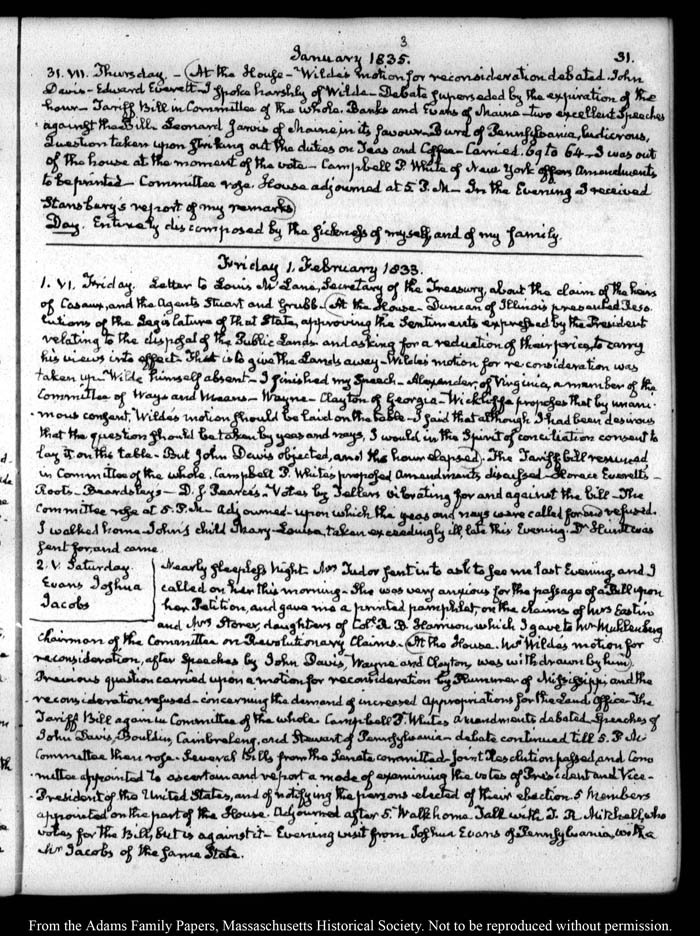 3
January 1835.
31.
31. VII. Thursday. – At the House – Wilde's motion for reconsideration debated. John
Davis – Edward Everett – I spoke harshly of Wilde – Debate superseded by the expiration of the
hour – Tariff Bill in Committee of the whole. Banks and Evans of Maine – two excellent Speeches
against the Bill. Leonard Jarvis of Maine in its favour – Burd of Pennsylvania, ludicrous,
Question taken upon striking out the duties on Teas and Coffee – Carried. 69 to 64 – I was out
of the house at the moment of the vote – Campbell P. White of New York offers Amendments
to be printed – Committee rose. House adjourned at 5 P.M – In the Evening I received
Stansbery's report of my remarks
Day. Entirely discomposed by the sickness of myself, and of my family.
Friday 1. February 1833.
1. VI. Friday. Letter to Louis McLane, Secretary of the Treasury, about the claim of the heirs
of Cazaux, and the Agents Stuart and Grubb – At the House – Duncan of Illinois presented Reso
lutions of the Legislature of that State, approving the Sentiments expressed by the President
relating to the disposal of the Public Lands and asking for a reduction of their price, to carry
his views into effect – That is to give the Lands away – Wilde's motion for re-consideration was
taken up – Wilde himself absent – I finished my Speech – Alexander, of Virginia, a member of the
Committee of Ways and Means – Wayne – Clayton of Georgia – Wickliffe proposes that by unani-
mous consent, Wilde's motion should be laid on the table – I said that although I had been desirous
that the question should be taken by yeas and nays, I would in the Spirit of conciliation consent to
lay it on the table – But John Davis objected, and the hour elapsed. The Tariff bill resumed
in Committee of the whole. Campbell P. White's proposed Amendments discussed – Horace Everett's –
Root's – Beardsley's – D. J. Pearce's – Votes by Tellers vibrating for and against the bill – The
Committee rose at 5. P.M – Adjourned – upon which the yeas and nays were called for and refused.
I walked home – John's child Mary-Louisa, taken exceedingly ill late this Evening. Dr Hunt was
sent for, and came.
2. V. Saturday.
Evans Joshua
Jacobs
Nearly sleepless Night. Mrs Tudor sent in to ask to see me last Evening, and I
called on her this morning – She was very anxious for the passage of a Bill upon
her Petition, and gave me a printed pamphlet, on the claims of Mrs Eastin
and Mrs Storer, daughters of Coll. R. B. Harrison which I gave to Mr Muhlenberg
Chairman of the Committee on Revolutionary Claims – At the House. Mr Wilde's motion for
reconsideration, after Speeches by John Davis, Wayne and Clayton, was withdrawn by him
Previous question carried upon a motion for reconsideration by Plummer of Mississippi and the
reconsideration refused – concerning the demand of increased Appropriations for the Land Office – The
Tariff Bill again in Committee of the whole. Campbell P. White's amendments debated – Speeches of
John Davis, Bouldin, Cambreleng, and Stewart of Pennsylvania – debate continued till 5. P.M
Committee then rose. Several bills from the Senate committed – Joint Resolution passed, and Com
mittee appointed to ascertain and report a mode of examining the votes of President and Vice-
President of the United States, and of notifying the persons elected of their election. 5 Members
appointed on the part of the House. Adjourned after 5. Walk home. Talk with T. R. Mitchell, who
votes for the Bill, but is against it – Evening visit from Joshua Evans of Pennsylvania, with a
Mr Jacobs of the same State.
From the Adams Family Papers, Massachusetts Historical Society. Not to be reproduced without permission.